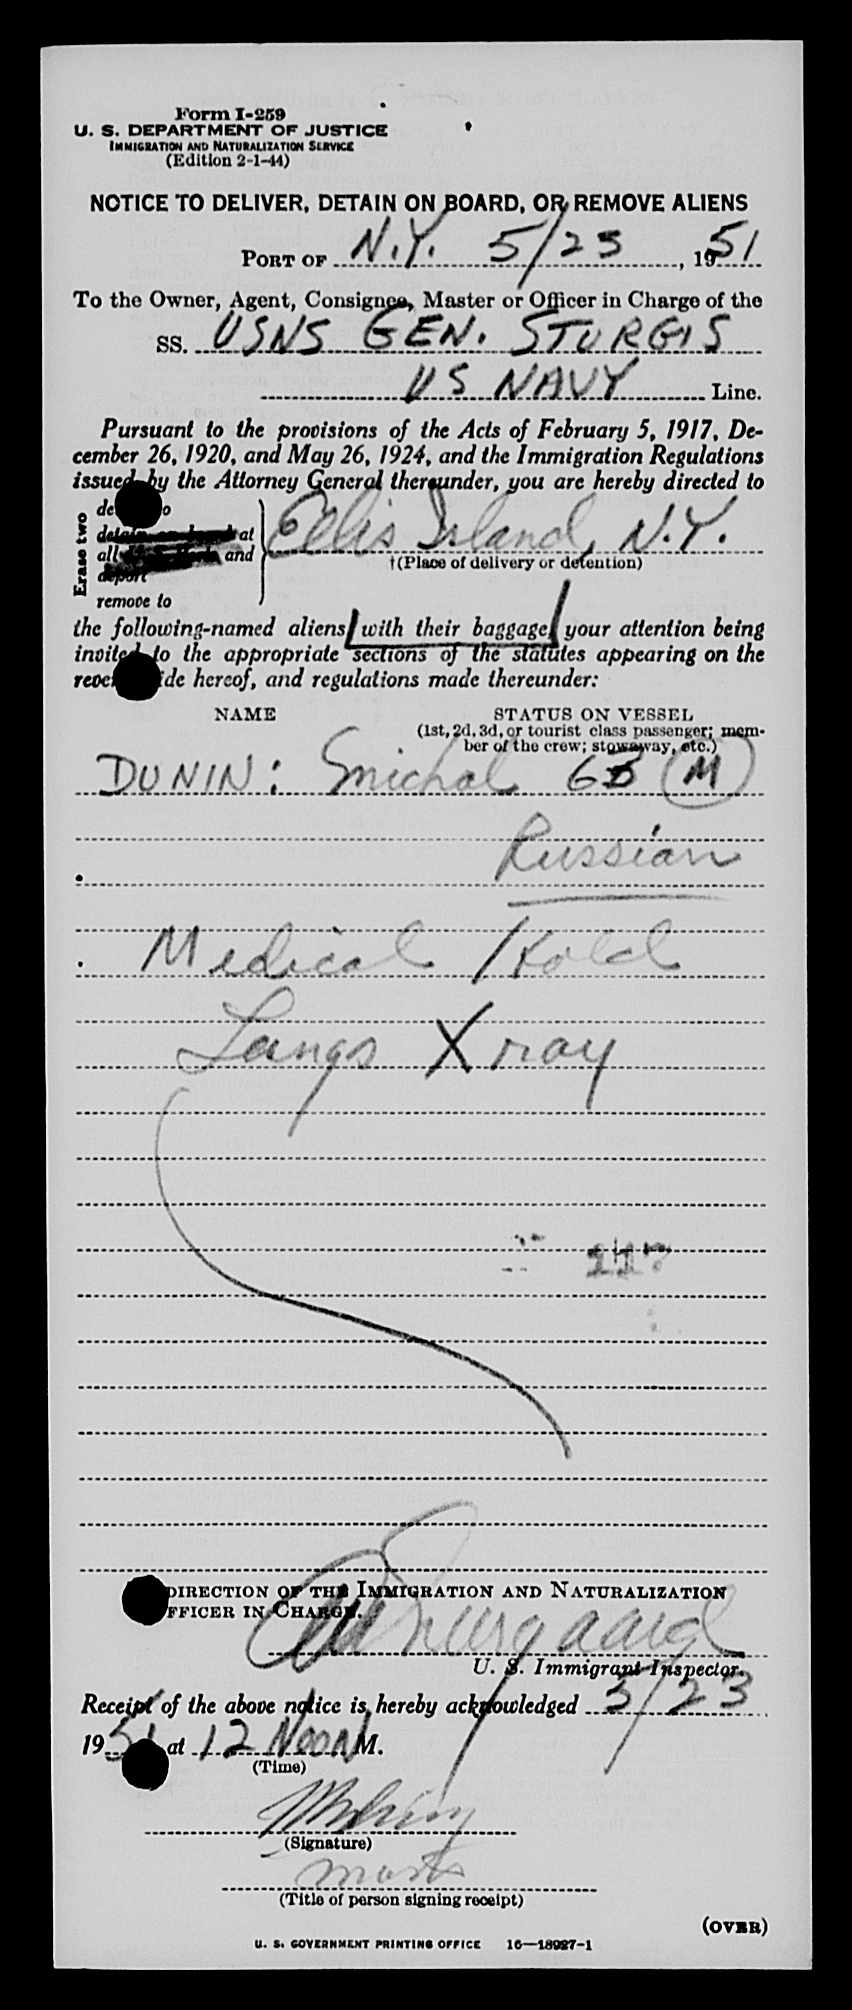 Form I-259
U. S. DEPARTMENT OF JUSTICE
IMMIGRATION AND NATURALIZATION SERVICE
(Edition 2-1-44)
NOTICE TO DELIVER, DETAIN ON BOARD, OR REMOVE ALIENS
PORT OF N.Y. 5/23, 1951
To the Owner, Agent, Consignee, Master or Officer in Charge of the
SS. USNS GEN. STURGIS
US NAVY Line.
Pursuant to the provisions of the Acts of February 5, 1917, De-
cember 26, 1920, and May 26, 1924, and the Immigration Regulations
issued by the Attorney General thereunder, you are hereby directed to
Erase two
detain on board at
all and
deport
remove to
Ellis Island, N.Y.
†(Place of delivery or detention)
the following-named aliens with their baggage, your attention being
invited to the appropriate sections of the statutes appearing on the
hereof, and regulations made thereunder:
NAME STATUS ON VESSEL
(1st, 2d, 3d, or tourist class passenger; mem-
ber of the crew; stowaway, etc.)
DUNIN: Michal (M)
Russian
Medical Hold
Lungs X ray
DIRECTION OF THE IMMIGRATION AND NATURALIZATION
OFFICER IN CHARGE.
U. S. Immigrant Inspector.
Receipt of the above notice is hereby acknowledged 5/23
1951 at 12 Noon M.
(Time)
(Signature)
(Title of person signing receipt)
(OVER)
U. S. GOVERNMENT PRINTING OFFICE 16—18927-1